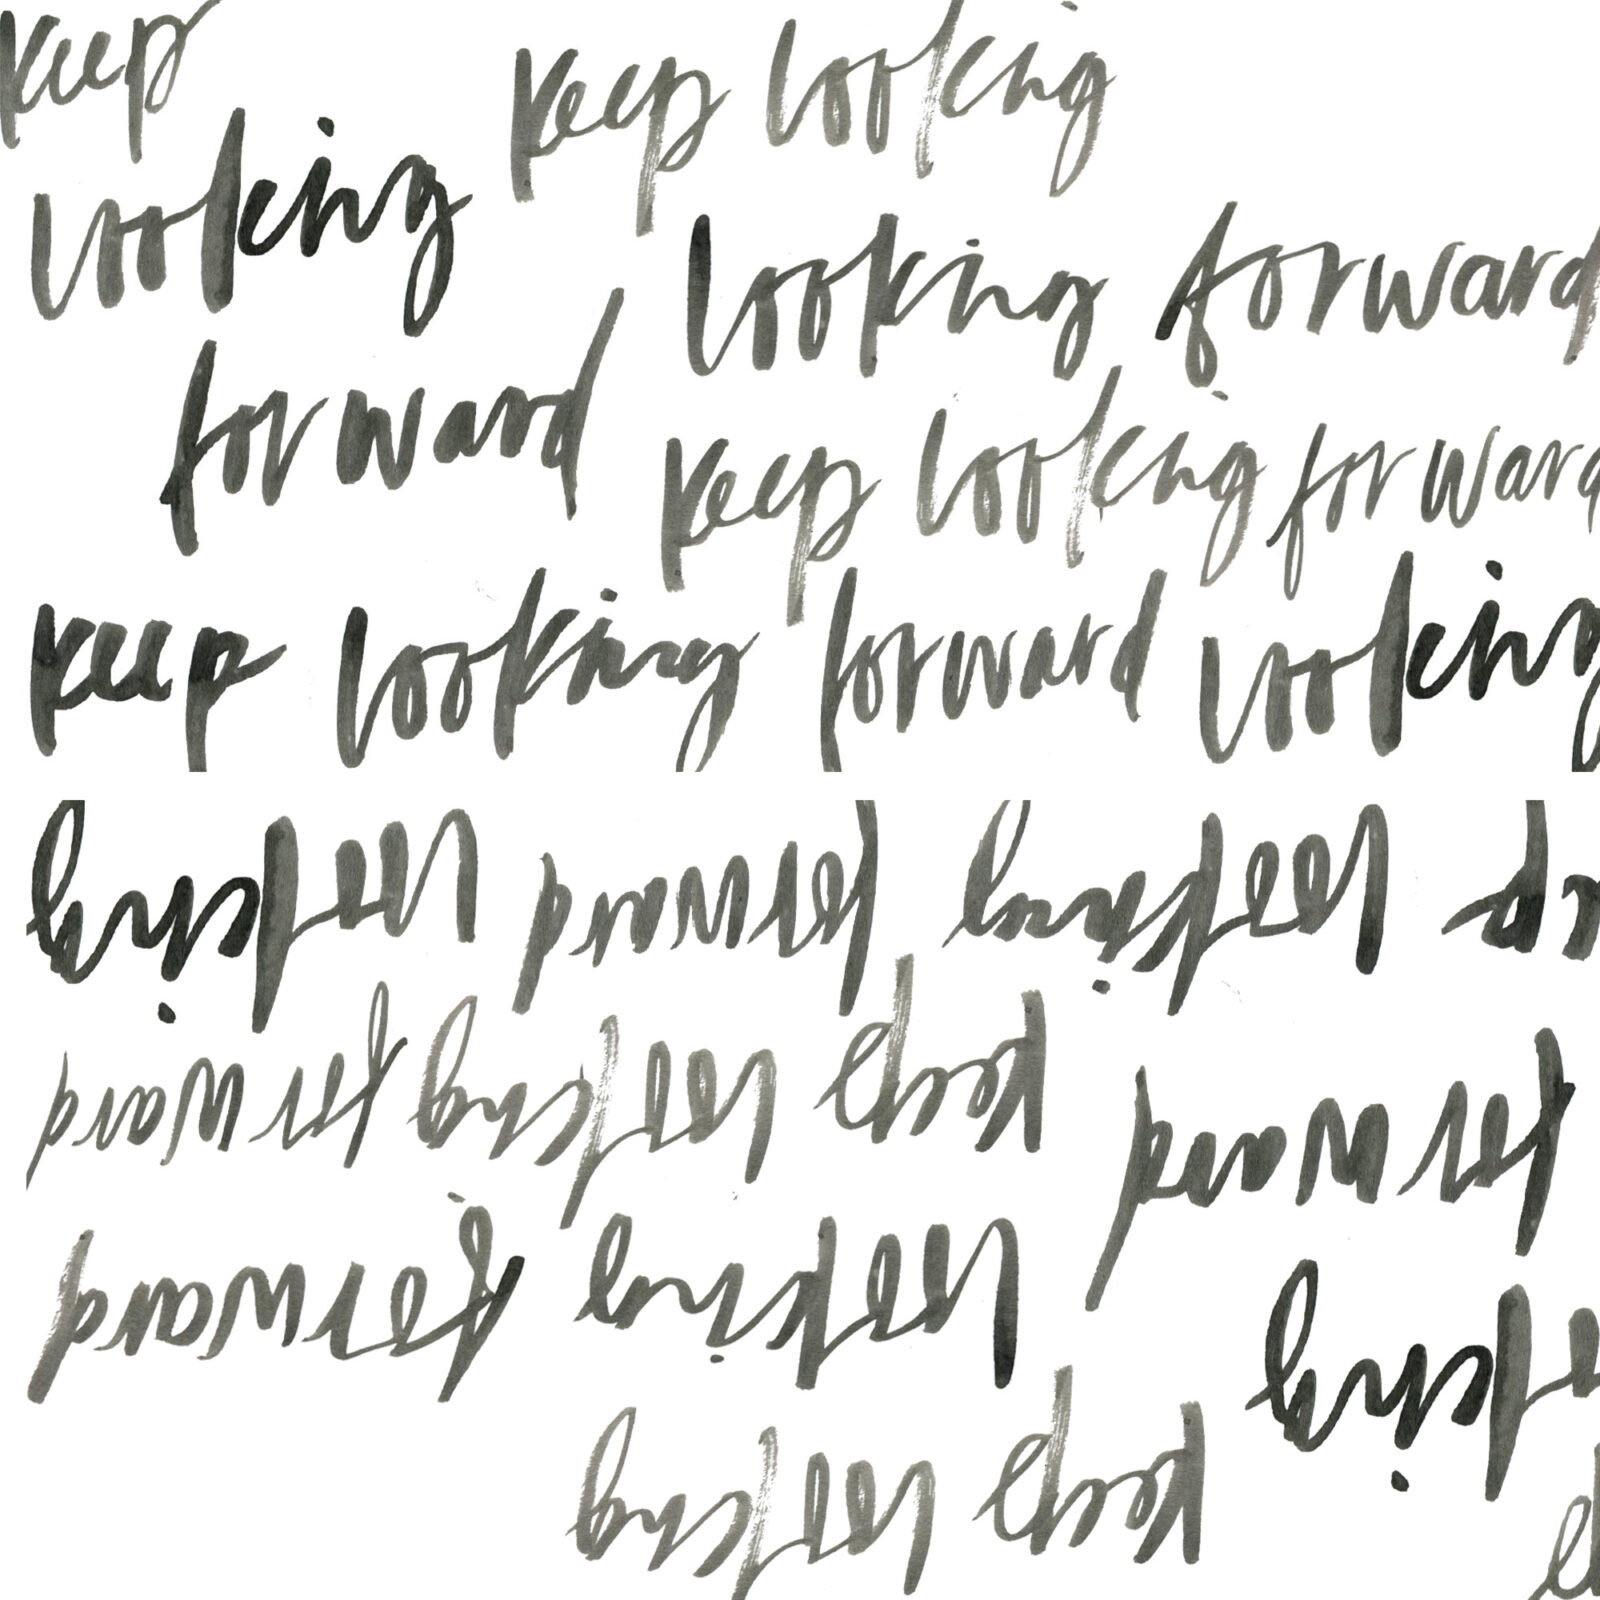 keep
keep looking
looking
looking forward
forward
keep looking forward
keep looking forward looking
looking forward looking
forward
keep looking forward
looking forward
keep looking